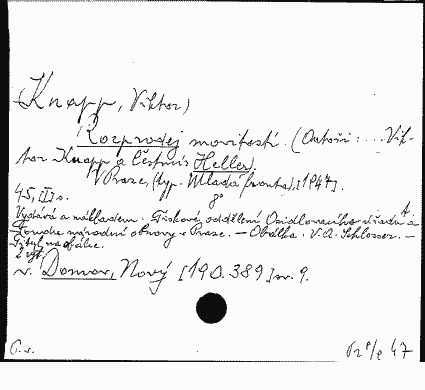 (Knapp, Viktor)
Rozprodej movitostí. (Autoři: ... Vik-
tor Knapp a Čestmír Heller).
V Praze, (typ. Mladá fronta), [1947].
8°
45, [I] s.
Vydává a nákladem Tiskové oddělení Osidlovacího úřadu a
Fondu národní obnovy v Praze. — Obálka: V. A. Schlosser. —
Titul na obálce.
2 výt.
v. Domov, Nový [190.389] sv. 9.
Pz 47